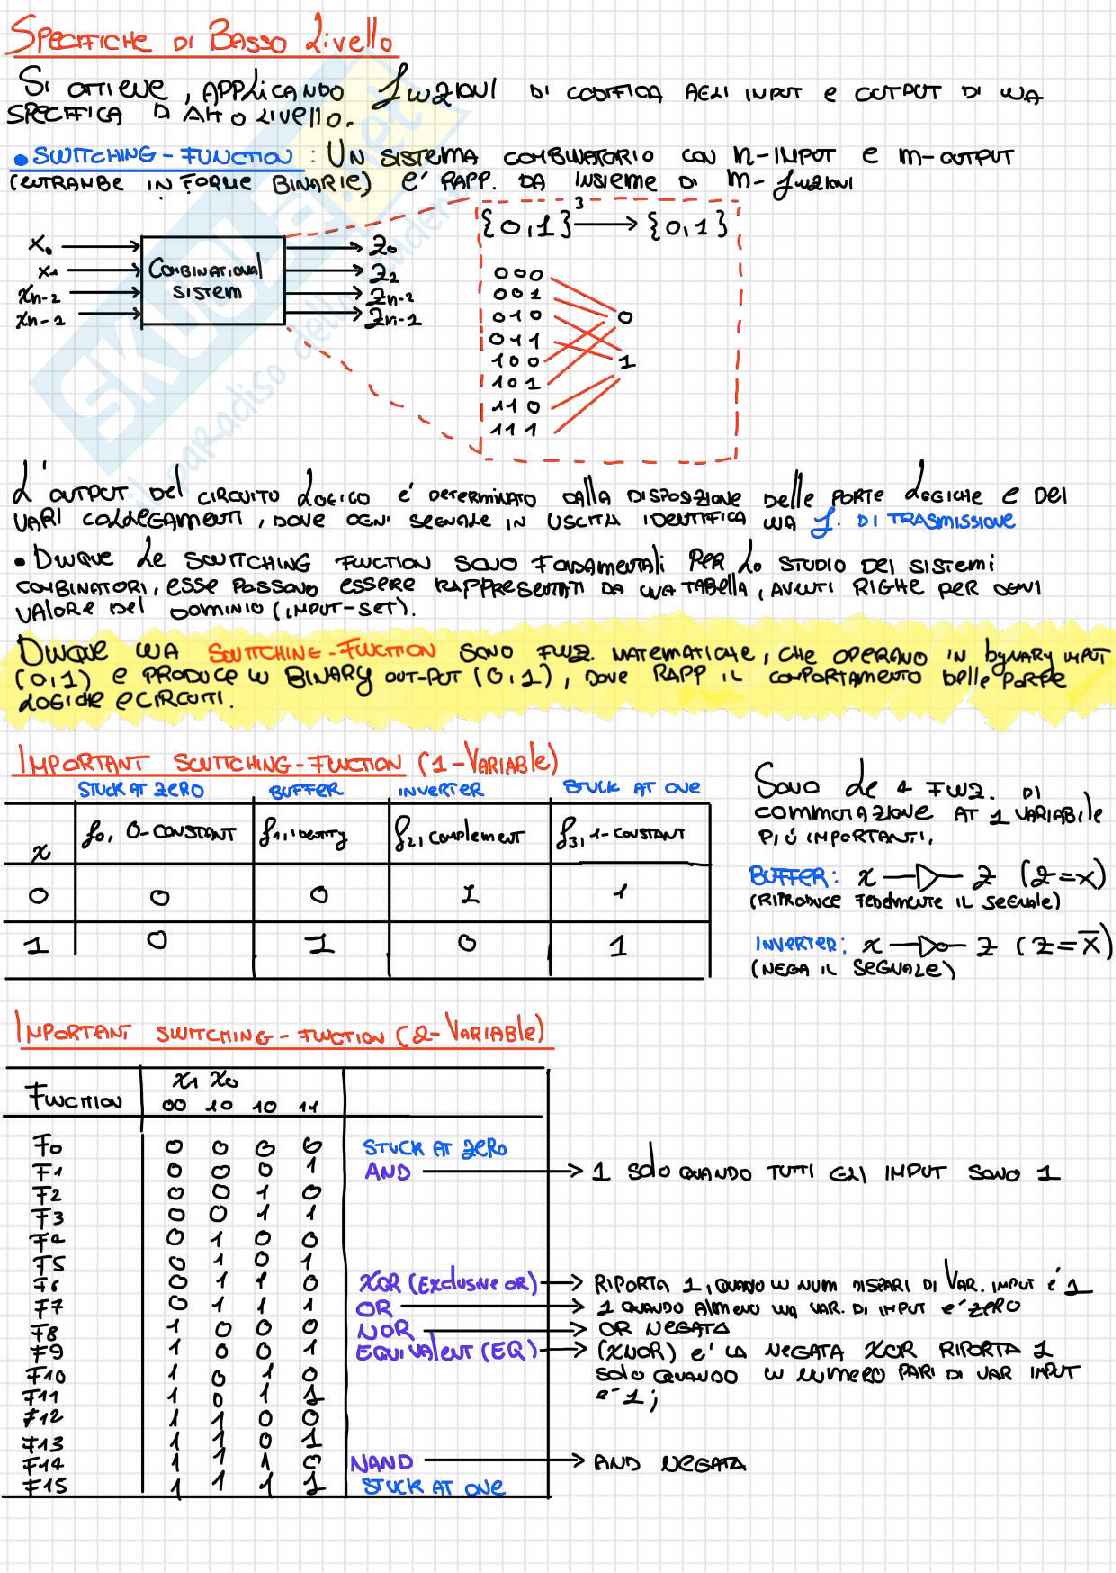 SPECIFICHE DI BASSO LIVELLO
SI OTTIENE, APPLICANDO FUNZIONI DI CODIFICA AGLI INPUT E OUTPUT DI UNA
SPECIFICA D ALTO LIVELLO.
• SWITCHING-FUNCTION: UN SISTEMA COMBINATORIO CON N-INPUT E M-OUTPUT
(ENTRAMBE IN FORME BINARIE) E' RAPP. DA INSIEME DI M-FUNZIONI
{0,1}³ → {0,1}
X₀ Z₀
X₁ COMBINATIONAL Z₂
Xn-2 SISTEM Zn-2
Xn-1 Zn-1
000
001
010 0
011
100 1
101
110
111
L'OUTPUT DEL CIRCUITO LOGICO E' DETERMINATO DALLA DISPOSIZIONE DELLE PORTE LOGICHE E DEI
VARI COLLEGAMENTI, DOVE OGNI SEGNALE IN USCITA IDENTIFICA UNA F. DI TRASMISSIONE
• DUNQUE LE SWITCHING FUNCTION SONO FONDAMENTALI PER LO STUDIO DEI SISTEMI
COMBINATORI, ESSE POSSONO ESSERE RAPPRESENTATI DA UNA TABELLA, AVENTI RIGHE PER OGNI
VALORE DEL DOMINIO (INPUT-SET).
DUNQUE UNA SWITCHING-FUNCTION SONO FUNZ. MATEMATICHE, CHE OPERANO IN BYNARY INPUT
(0,1) E PRODUCE UN BINARY OUT-PUT (0,1), DOVE RAPP IL COMPORTAMENTO DELLE PORTE
LOGICHE E CIRCUITI.
IMPORTANT SWITCHING-FUNCTION (1-VARIABLE)
STUCK AT ZERO BUFFER INVERTER STUCK AT ONE
x f₀, 0-CONSTANT f₁, IDENTITY f₂, COMPLEMENT f₃, 1-CONSTANT
0 0 0 1 1
1 0 1 0 1
SONO LE 4 FUNZ. DI
COMMUTAZIONE AT 1 VARIABILE
PIÙ IMPORTANTI.
BUFFER: x Z (Z=X)
(RIPRODUCE FEDELMENTE IL SEGNALE)
INVERTER: x Z (Z=X̅)
(NEGA IL SEGNALE)
IMPORTANT SWITCHING-FUNCTION (2-VARIABLE)
X₁ X₀
FUNCTION 00 10 10 11
F0 0 0 0 0 STUCK AT ZERO
F1 0 0 0 1 AND → 1 SOLO QUANDO TUTTI GLI INPUT SONO 1
F2 0 0 1 0
F3 0 0 1 1
F4 0 1 0 0
F5 0 1 0 1
F6 0 1 1 0 XOR (EXCLUSIVE OR) → RIPORTA 1, QUANDO UN NUM DISPARI DI VAR. INPUT È 1
F7 0 1 1 1 OR → 1 QUANDO ALMENO UNA VAR. DI INPUT E' ZERO
F8 1 0 0 0 NOR → OR NEGATA
F9 1 0 0 1 EQUIVALENT (EQ) → (XNOR) E' LA NEGATA XOR RIPORTA 1
F10 1 0 1 0 SOLO QUANDO UN NUMERO PARI DI VAR INPUT
F11 1 0 1 1 E' 1;
F12 1 1 0 0
F13 1 1 0 1
F14 1 1 1 0 NAND → AND NEGATA
F15 1 1 1 1 STUCK AT ONE